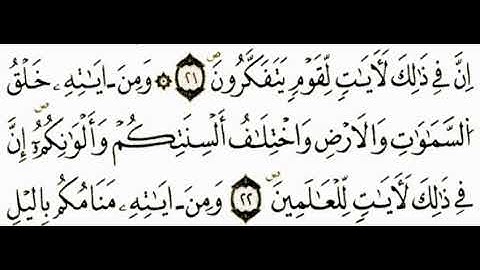 إِنَّ فِي ذَٰلِكَ لَأٓيَٰتٖ لِّقَوۡمٖ يَتَفَكَّرُونَۖ ٢١ ۞ وَمِنَ اٰيَٰتِهِۦ خَلۡقُ
اُ۬لسَّمَٰوَٰتِ وَالَارۡضِ وَاخۡتِلَٰفُ أَلۡسِنَتِكُمۡ وَأَلۡوَٰنِكُمُۥٓۖ إِنَّ
فِي ذَٰلِكَ لَأٓيَٰتٖ لِّلۡعَٰلَمِينَۖ ٢٢ وَمِنَ اٰيَٰتِهِۦ مَنَامُكُم بِالَّيۡلِ